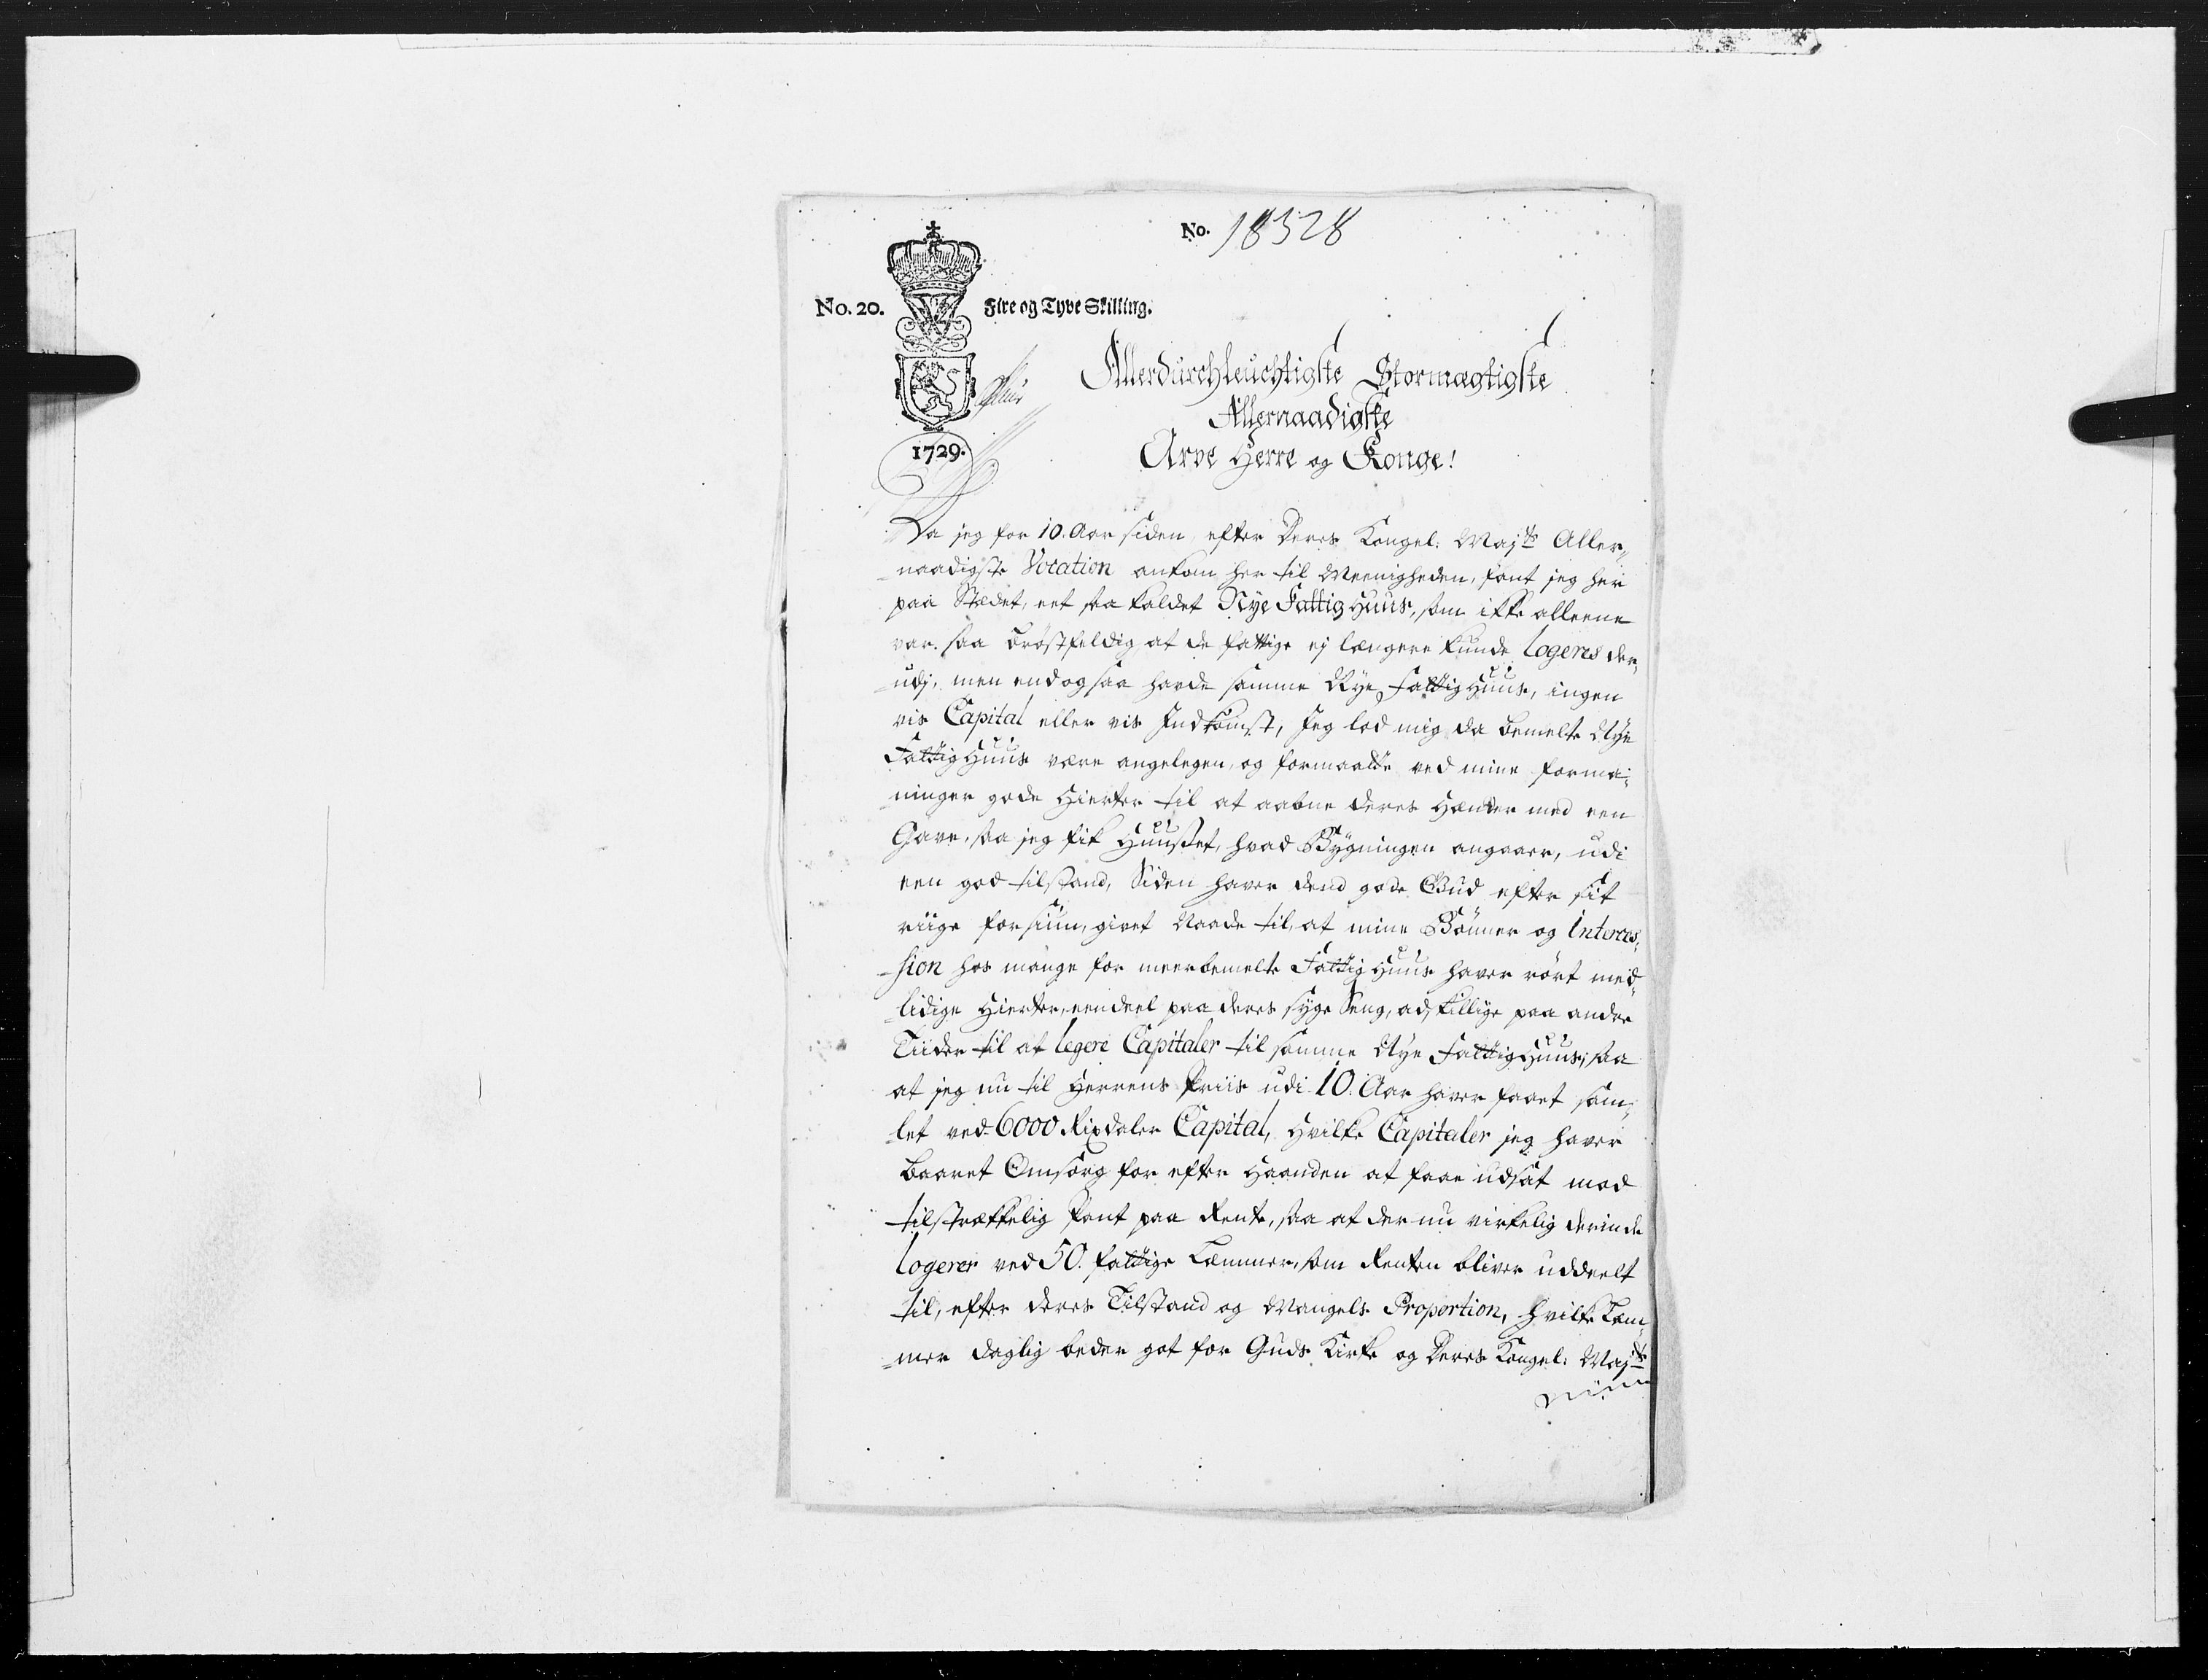 No. 18328
No. 20. Fire og Tyve Skilling.
1729.
Allerdurchleuchtigste Stormægtigste
Allernaadigste
Arve Herre og Konge!
Da jeg for 10. Aar siden, efter Deres Kongel: Majts Aller„
naadigste Vocation ankom her til Meenigheden, fant jeg her
paa Stædet, eet saa kaldet Nye Fattig Huus, som ikke alleene
var saa Brøstfeldig, at de fattige ej længere kunde logeres der„
udj, men endogsaa havde samme Nye Fattig Huus, ingen
vis Capital eller vis Indkomst, Jeg lod mig da bemelte Nye
Fattig Huus være angelegen, og formaaede ved mine forma„
ninger gode Hierter til at aabne deres Hænder med een
Gave, saa jeg fik Huuset, hvad Bygningen angaaer, udi
een god tilstand, Siden haver dend gode Gud efter sit
riige forsiun, givet Naade til, at mine Bønner og Interces„
sion hos mange for meerbemelte Fattig Huus haver rørt med„
lidige Hierter, eendeel paa deres syge Seng, adskillige paa andre
Tiider til at legere Capitaler til samme Nye Fattig Huus; saa
at jeg nu til Herrens Priis udi 10. Aar haver faaet sam„
let ved 6000 Rixdaler Capital, Hvilke Capitaler jeg haver
baaret Omsorg for efter Haanden at faae udsat mod
tilstrækkelig Pant paa Rente, saa at der nu virkelig derinde
logerer ved 50. fattige Lemmer, som Renten bliver uddeelt
til, efter deres Tilstand og Mangels Proportion, hvilke Lem„
mer daglig beder got for Guds Kirke og Deres Kongel: Majts